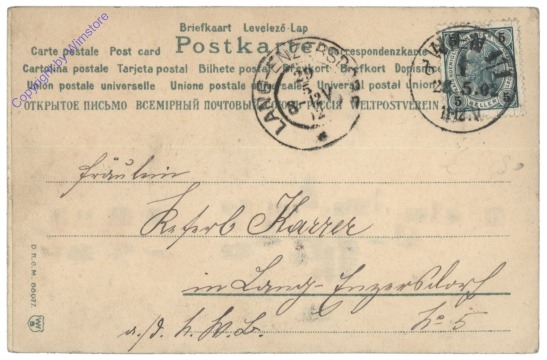 Briefkaart Levelező-Lap
Carte postale Post card Postkarte Correspondenzkarte
Cartolina postale Tarjeta postal Bilhete postal Brefkort
Union postale universelle Unione postale universale Universal postal union
ОТКРЫТОЕ ПИСЬМО ВСЕМІРНЫЙ ПОЧТОВЫЙ РОССІЯ WELTPOSTVEREIN
Copyright by Wimstore
LANG-ENZERSDORF
WIEN
5
HELLER
5
Fräulein
Karrer
in Lang-Enzersdorf
a./d. N. W. B. No 5
D.R.G.M. 88077.